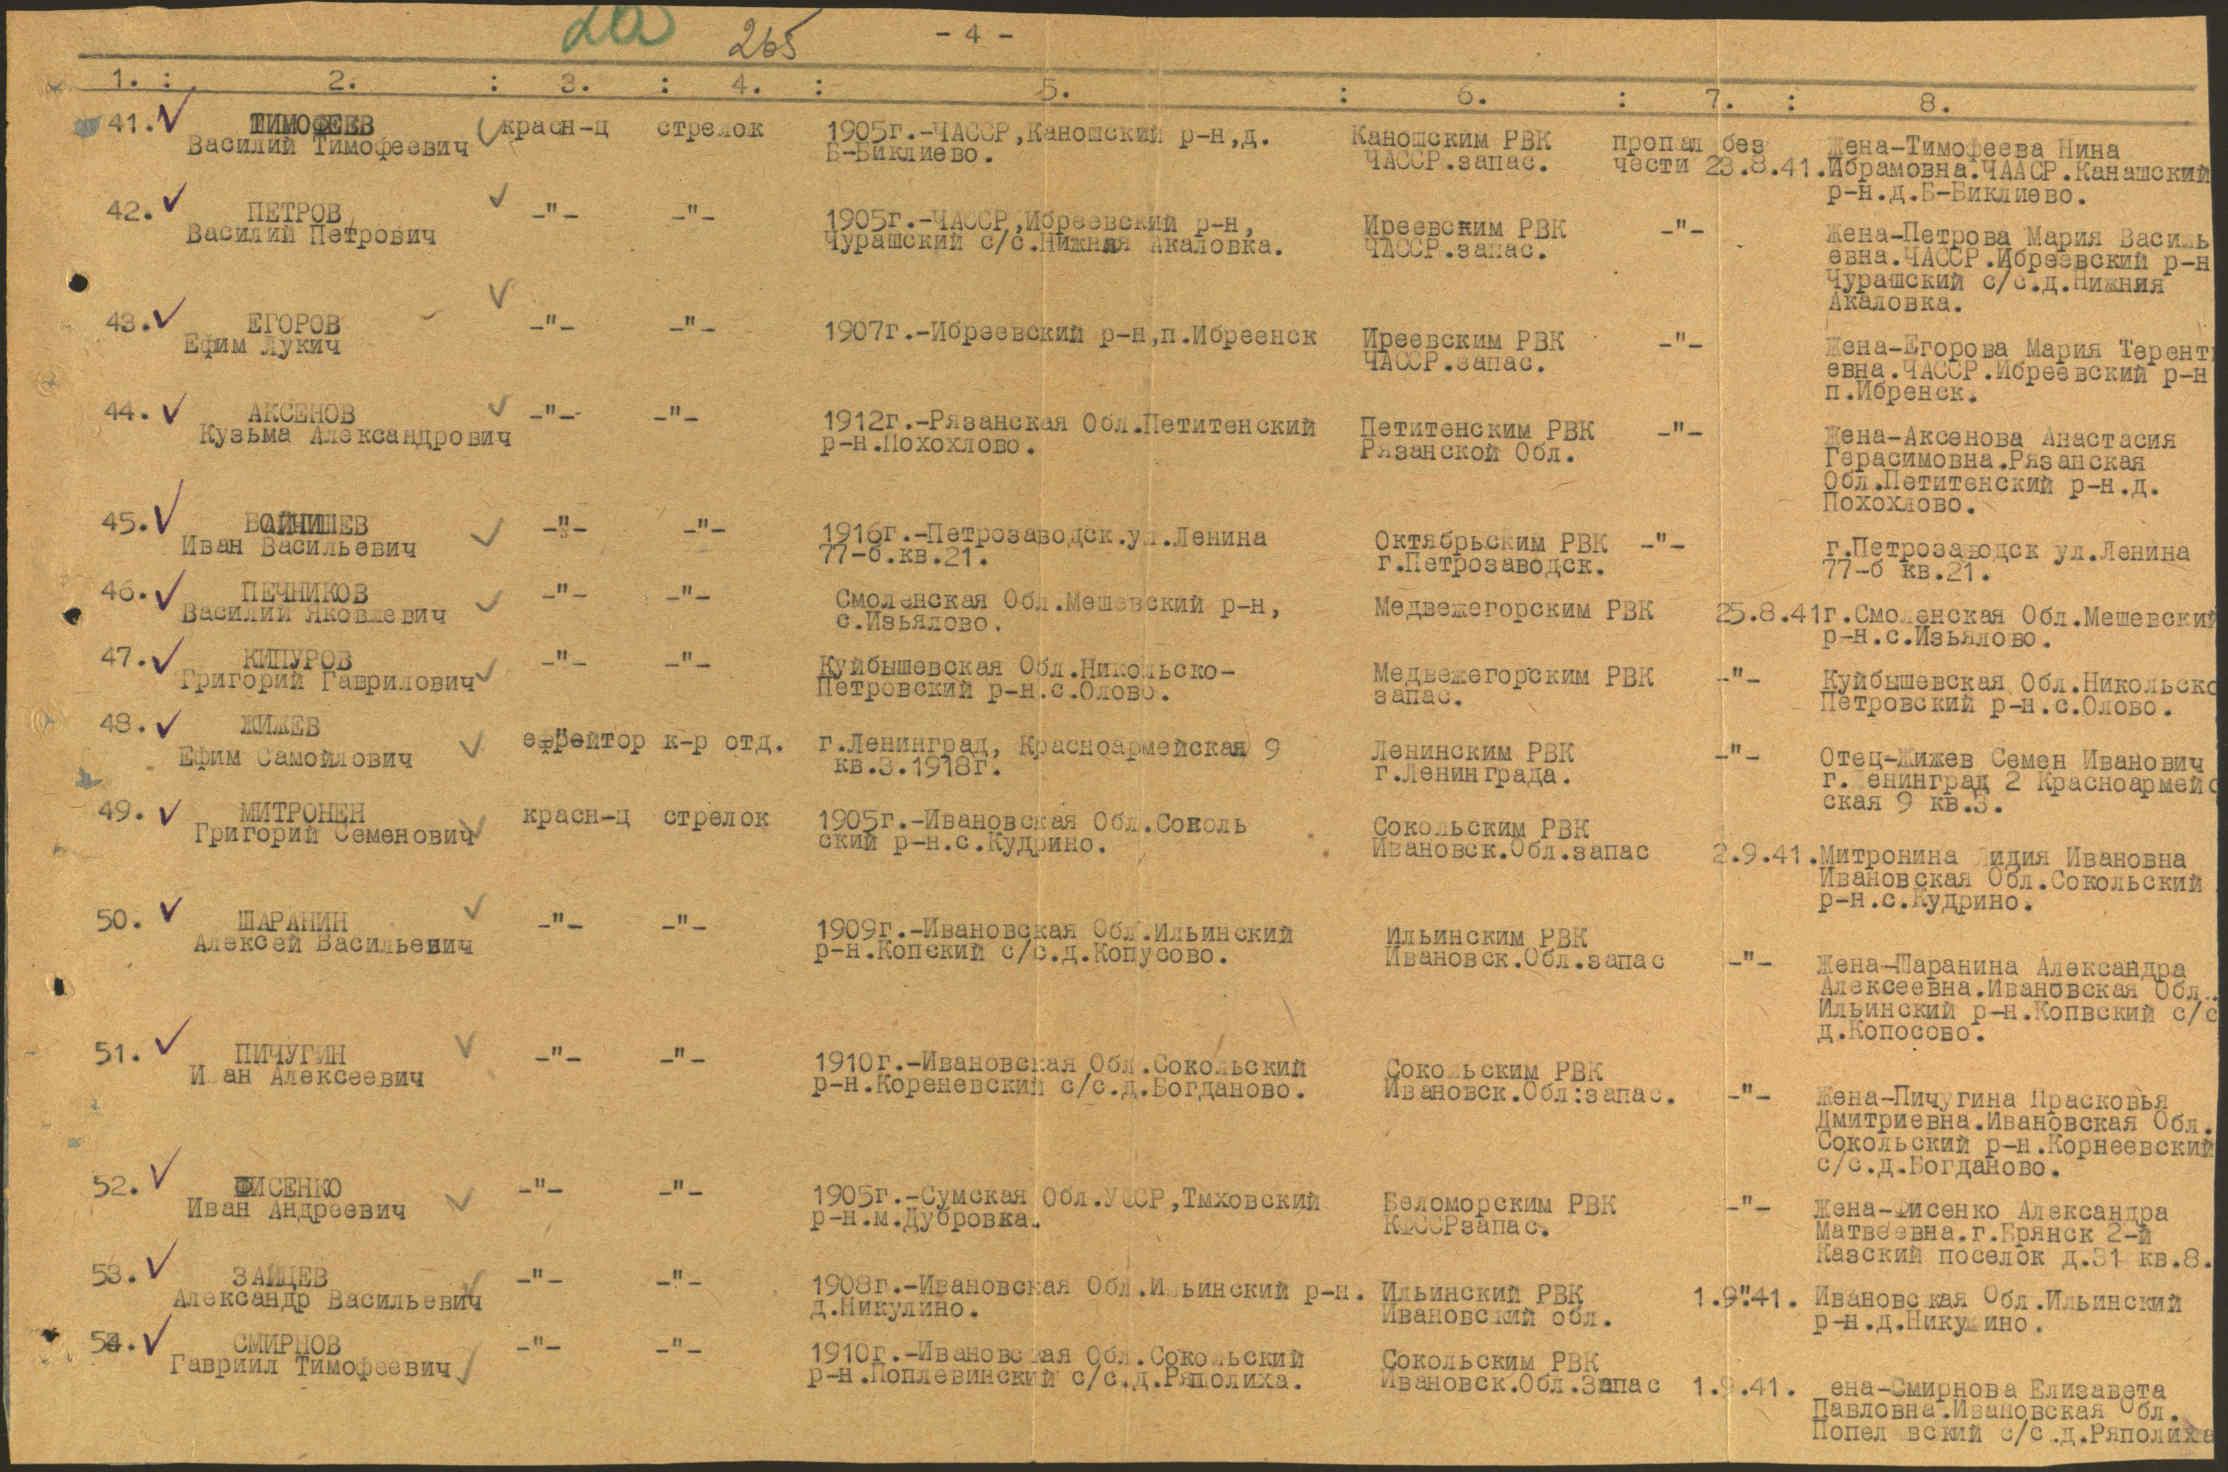 265
- 4 -
1. : 2. : 3. : 4. : 5. : 6. : 7. : 8.
41. ТИМОФЕЕВ красн-ц стрелок 1905г.-ЧАССР,Каношский р-н,д. Каношским РВК пропал без Жена-Тимофеева Нина
Василий Тимофеевич Б-Биклиево. ЧАССР.запас. чести 23.8.41. Ибрамовна.ЧААСР.Канашский
р-н.д.Б-Биклиево.
42. ПЕТРОВ -"- -"- 1905г.-ЧАССР,Ибреевский р-н, Иреевским РВК -"- Жена-Петрова Мария Василь
Василий Петрович Чурашский с/с.Нижняя Акаловка. ЧАССР.запас. евна.ЧАССР.Ибреевский р-н
Чурашский с/с.д.Нижния
Акаловка.
43. ЕГОРОВ -"- -"- 1907г.-Ибреевский р-н,п.Ибреенск Иреевским РВК -"- Жена-Егорова Мария Терент
Ефим Лукич ЧАССР.запас. евна.ЧАССР.Ибреевский р-н
п.Ибренск.
44. АКСЕНОВ -"- -"- 1912г.-Рязанская Обл.Петитенский Петитенским РВК -"- Жена-Аксенова Анастасия
Кузьма Александрович р-н.Похохлово. Рязанской Обл. Герасимовна.Рязанская
Обл.Петитенский р-н.д.
Похохлово.
45. -"- -"- 1916г.-Петрозаводск.ул.Ленина Октябрьским РВК -"- г.Петрозаводск ул.Ленина
Иван Васильевич 77-б.кв.21. г.Петрозаводск. 77-б кв.21.
46. ПЕЧНИКОВ -"- -"- Смоленская Обл.Мешевский р-н, Медвежегорским РВК 25.8.41г. Смоленская Обл.Мешевский
Василий Яковлевич с.Изьялово. р-н.с.Изьялово.
47. КИПУРОВ -"- -"- Куйбышевская Обл.Никольско- Медвежегорским РВК -"- Куйбышевская Обл.Никольско
Григорий Гаврилович Петровский р-н.с.Олово. запас. Петровский р-н.с.Олово.
48. ЖИЖЕВ ефрейтор к-р отд. г.Ленинград, Красноармейская 9 Ленинским РВК -"- Отец-Жижев Семен Иванович
Ефим Самойлович кв.3.1918г. г.Ленинграда. г. енинград 2 Красноармейс
ская 9 кв.3.
49. МИТРОНЕН красн-ц стрелок 1905г.-Ивановская Обл.Соколь Сокольским РВК
Григорий Семенович ский р-н.с.Кудрино. Ивановск.Обл.запас 2.9.41. Митронина Лидия Ивановна
Ивановская Обл.Сокольский
р-н.с.Кудрино.
50. ШАРАНИН -"- -"- 1909г.-Ивановская Обл.Ильинский Ильинским РВК
Алексей Васильевич р-н.Копский с/с.д.Копусово. Ивановск.Обл.запас -"- Жена-Шаранина Александра
Алексеевна.Ивановская Обл.
Ильинский р-н.Копвский с/с
д.Копосово.
51. ПИЧУГИН -"- -"- 1910г.-Ивановская Обл.Сокольский Сокольским РВК
И ан Алексеевич р-н.Кореневский с/с.д.Богданово. Ивановск.Обл:запас. -"- Жена-Пичугина Прасковья
Дмитриевна.Ивановская Обл.
Сокольский р-н.Корнеевский
с/с.д.Богданово.
52. ФИСЕНКО -"- -"- 1905г.-Сумская Обл.УССР,Тмховский Беломорским РВК -"- Жена-Фисенко Александра
Иван Андреевич р-н.м.Дубровка. КФССРзапас. Матвеевна.г.Брянск 2-й
Казский поселок д.31 кв.8.
53. ЗАЙЦЕВ -"- -"- 1908г.-Ивановская Обл.Ильинский р-н. Ильинский РВК 1.9.41. Ивановская Обл.Ильинский
Александр Васильевич д.Никулино. Ивановский обл. р-н.д.Никулино.
54. СМИРНОВ -"- -"- 1910г.-Ивановская Обл.Сокольский Сокольским РВК
Гавриил Тимофеевич р-н.Поплевинский с/с.д.Ряполиха. Ивановск.Обл.Запас 1.9.41. ена-Смирнова Елизавета
Павловна.Ивановская Обл.
Попел вский с/с.д.Ряполиха